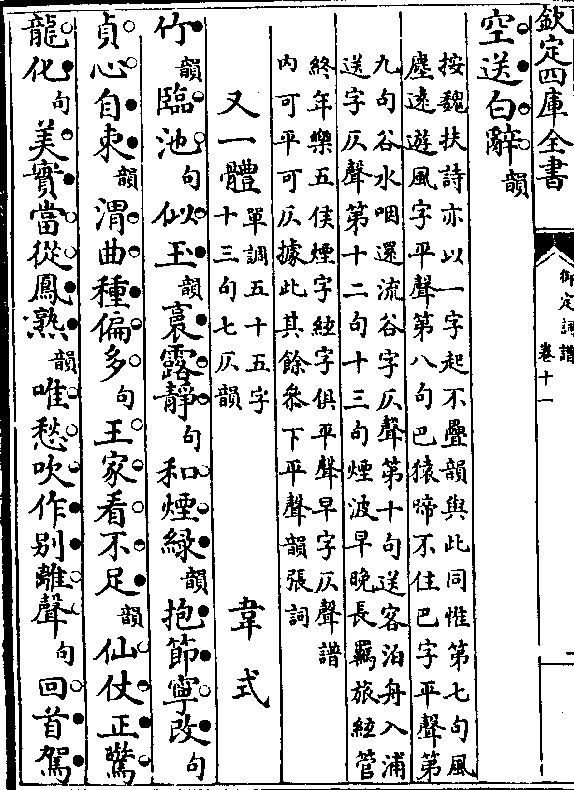 欽定四庫全書
御定詞譜 卷十一
空送白辭韻
按魏扶詩亦以一字起不疊韻與此同惟第七句風
塵遠遊風字平聲第八句巴猿啼不住巴字平聲第
九句谷水咽還流谷字仄聲第十句送客泊舟入浦
送字仄聲第十二句十三句煙波早晚長羈旅絃管
終年樂五侯煙字絃字俱平聲早字仄聲譜
内可平可仄據此其餘叅下平聲韻張詞
又一體單調五十五字
十三句七仄韻
韋式
竹韻臨池句似玉韻裛露靜句和煙綠韻抱節寧改句
貞心自束韻渭曲種偏多句王家看不足韻仙仗正驚
龍化句美實當從鳳熟韻唯愁吹作别離聲句回首駕